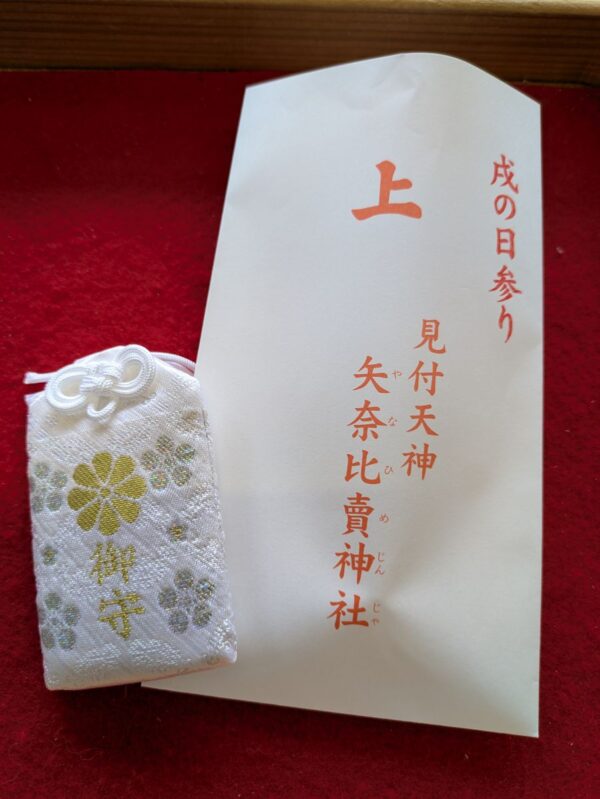 戌の日参り
上
見付天神
矢奈比賣神社
やなひめじんじゃ
御守